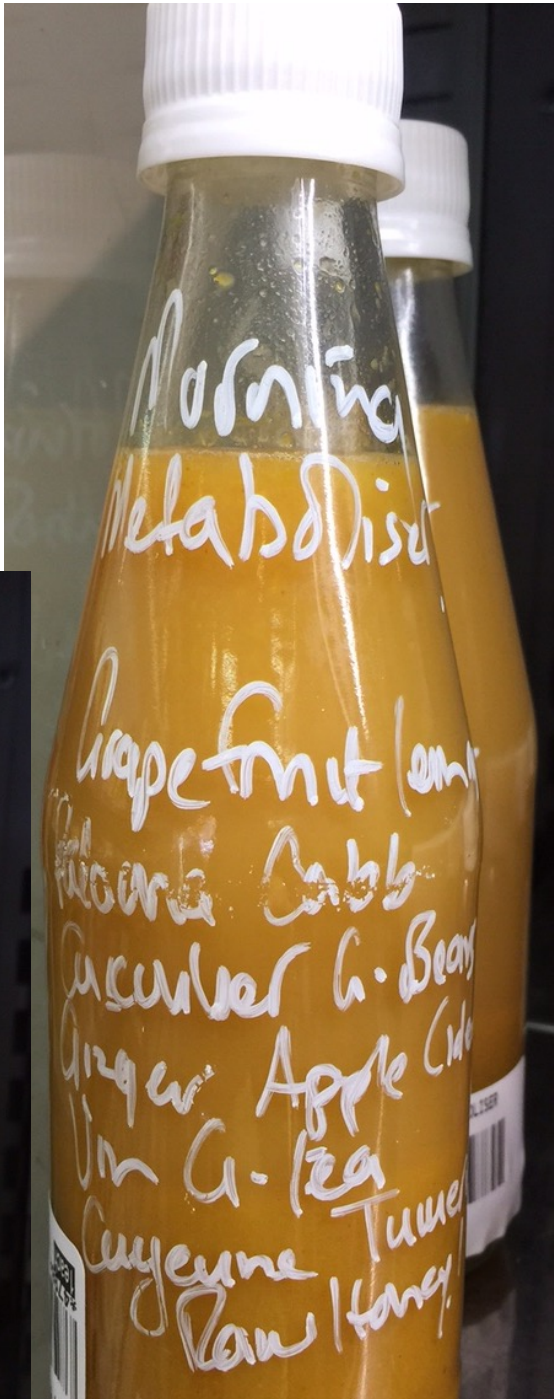 Morning
Metaboliser
Grapefruit lemon
Cabb
Cucumber G. Beans
Ginger Apple Cide
Vin G. Tea
Cayenne Tume
Raw Honey!
OLISER